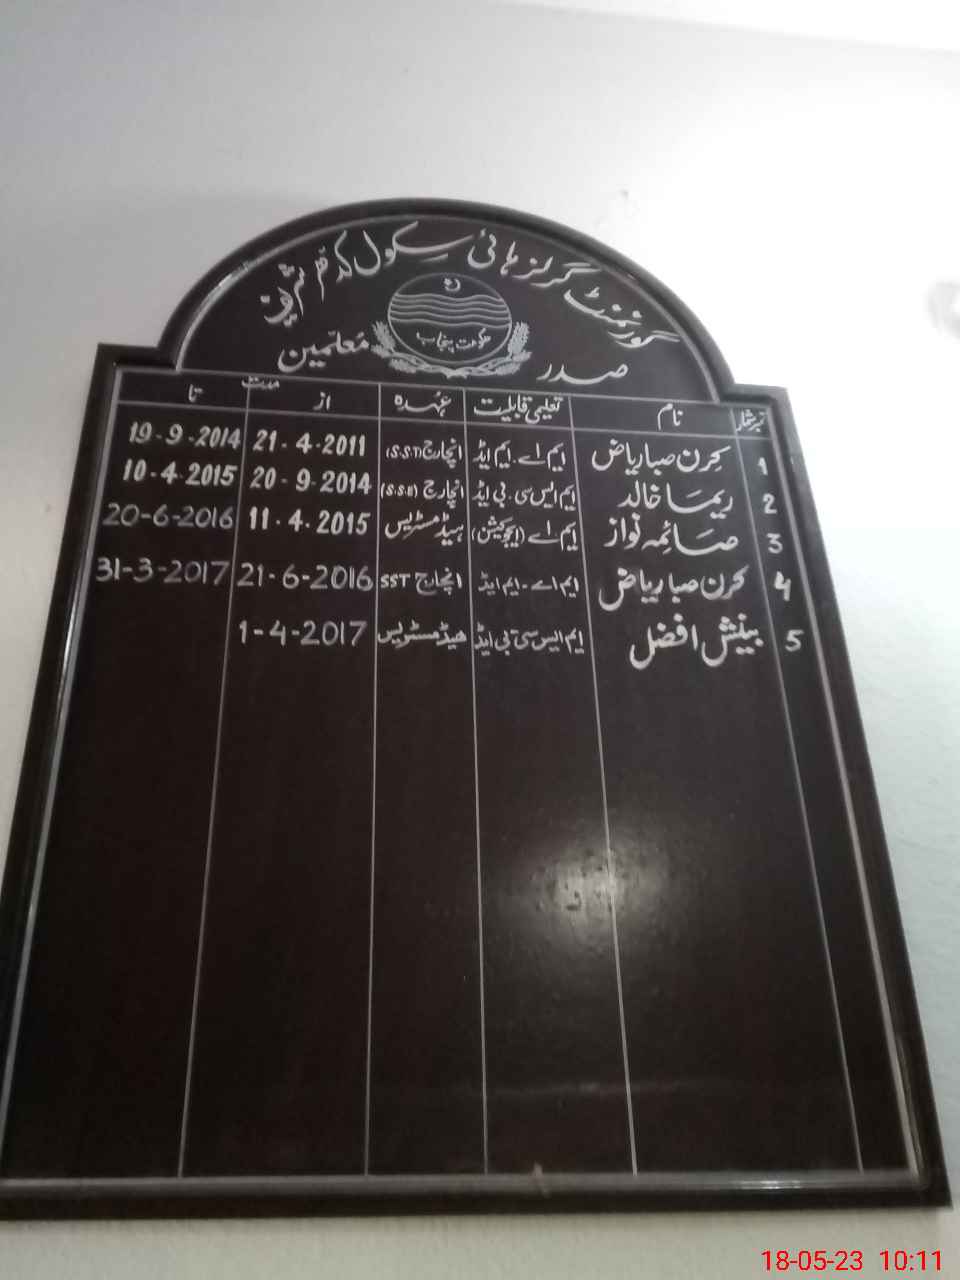 گورنمنٹ گرلز ہائی سکول شریف
حکومت پنجاب
صدر معلمین
نمبر شمار نام تعلیمی قابلیت عہدہ مدت
از تا
1 کرن صبا ریاض ایم اے ۔ ایم ایڈ انچارج (S.S.T) 21-4-2011 19-9-2014
2 ریما خالد ایم ایس سی ۔ بی ایڈ انچارج 20-9-2014 10-4-2015
3 صائمہ نواز ایم اے (ایجوکیشن) ہیڈمسٹریس 11-4-2015 20-6-2016
4 کرن صبا ریاض ایم اے ۔ ایم ایڈ انچارج SST 21-6-2016 31-3-2017
5 بینش افضل ایم ایس سی ۔ بی ایڈ ھیڈمسٹریس 1-4-2017
18-05-23 10:11